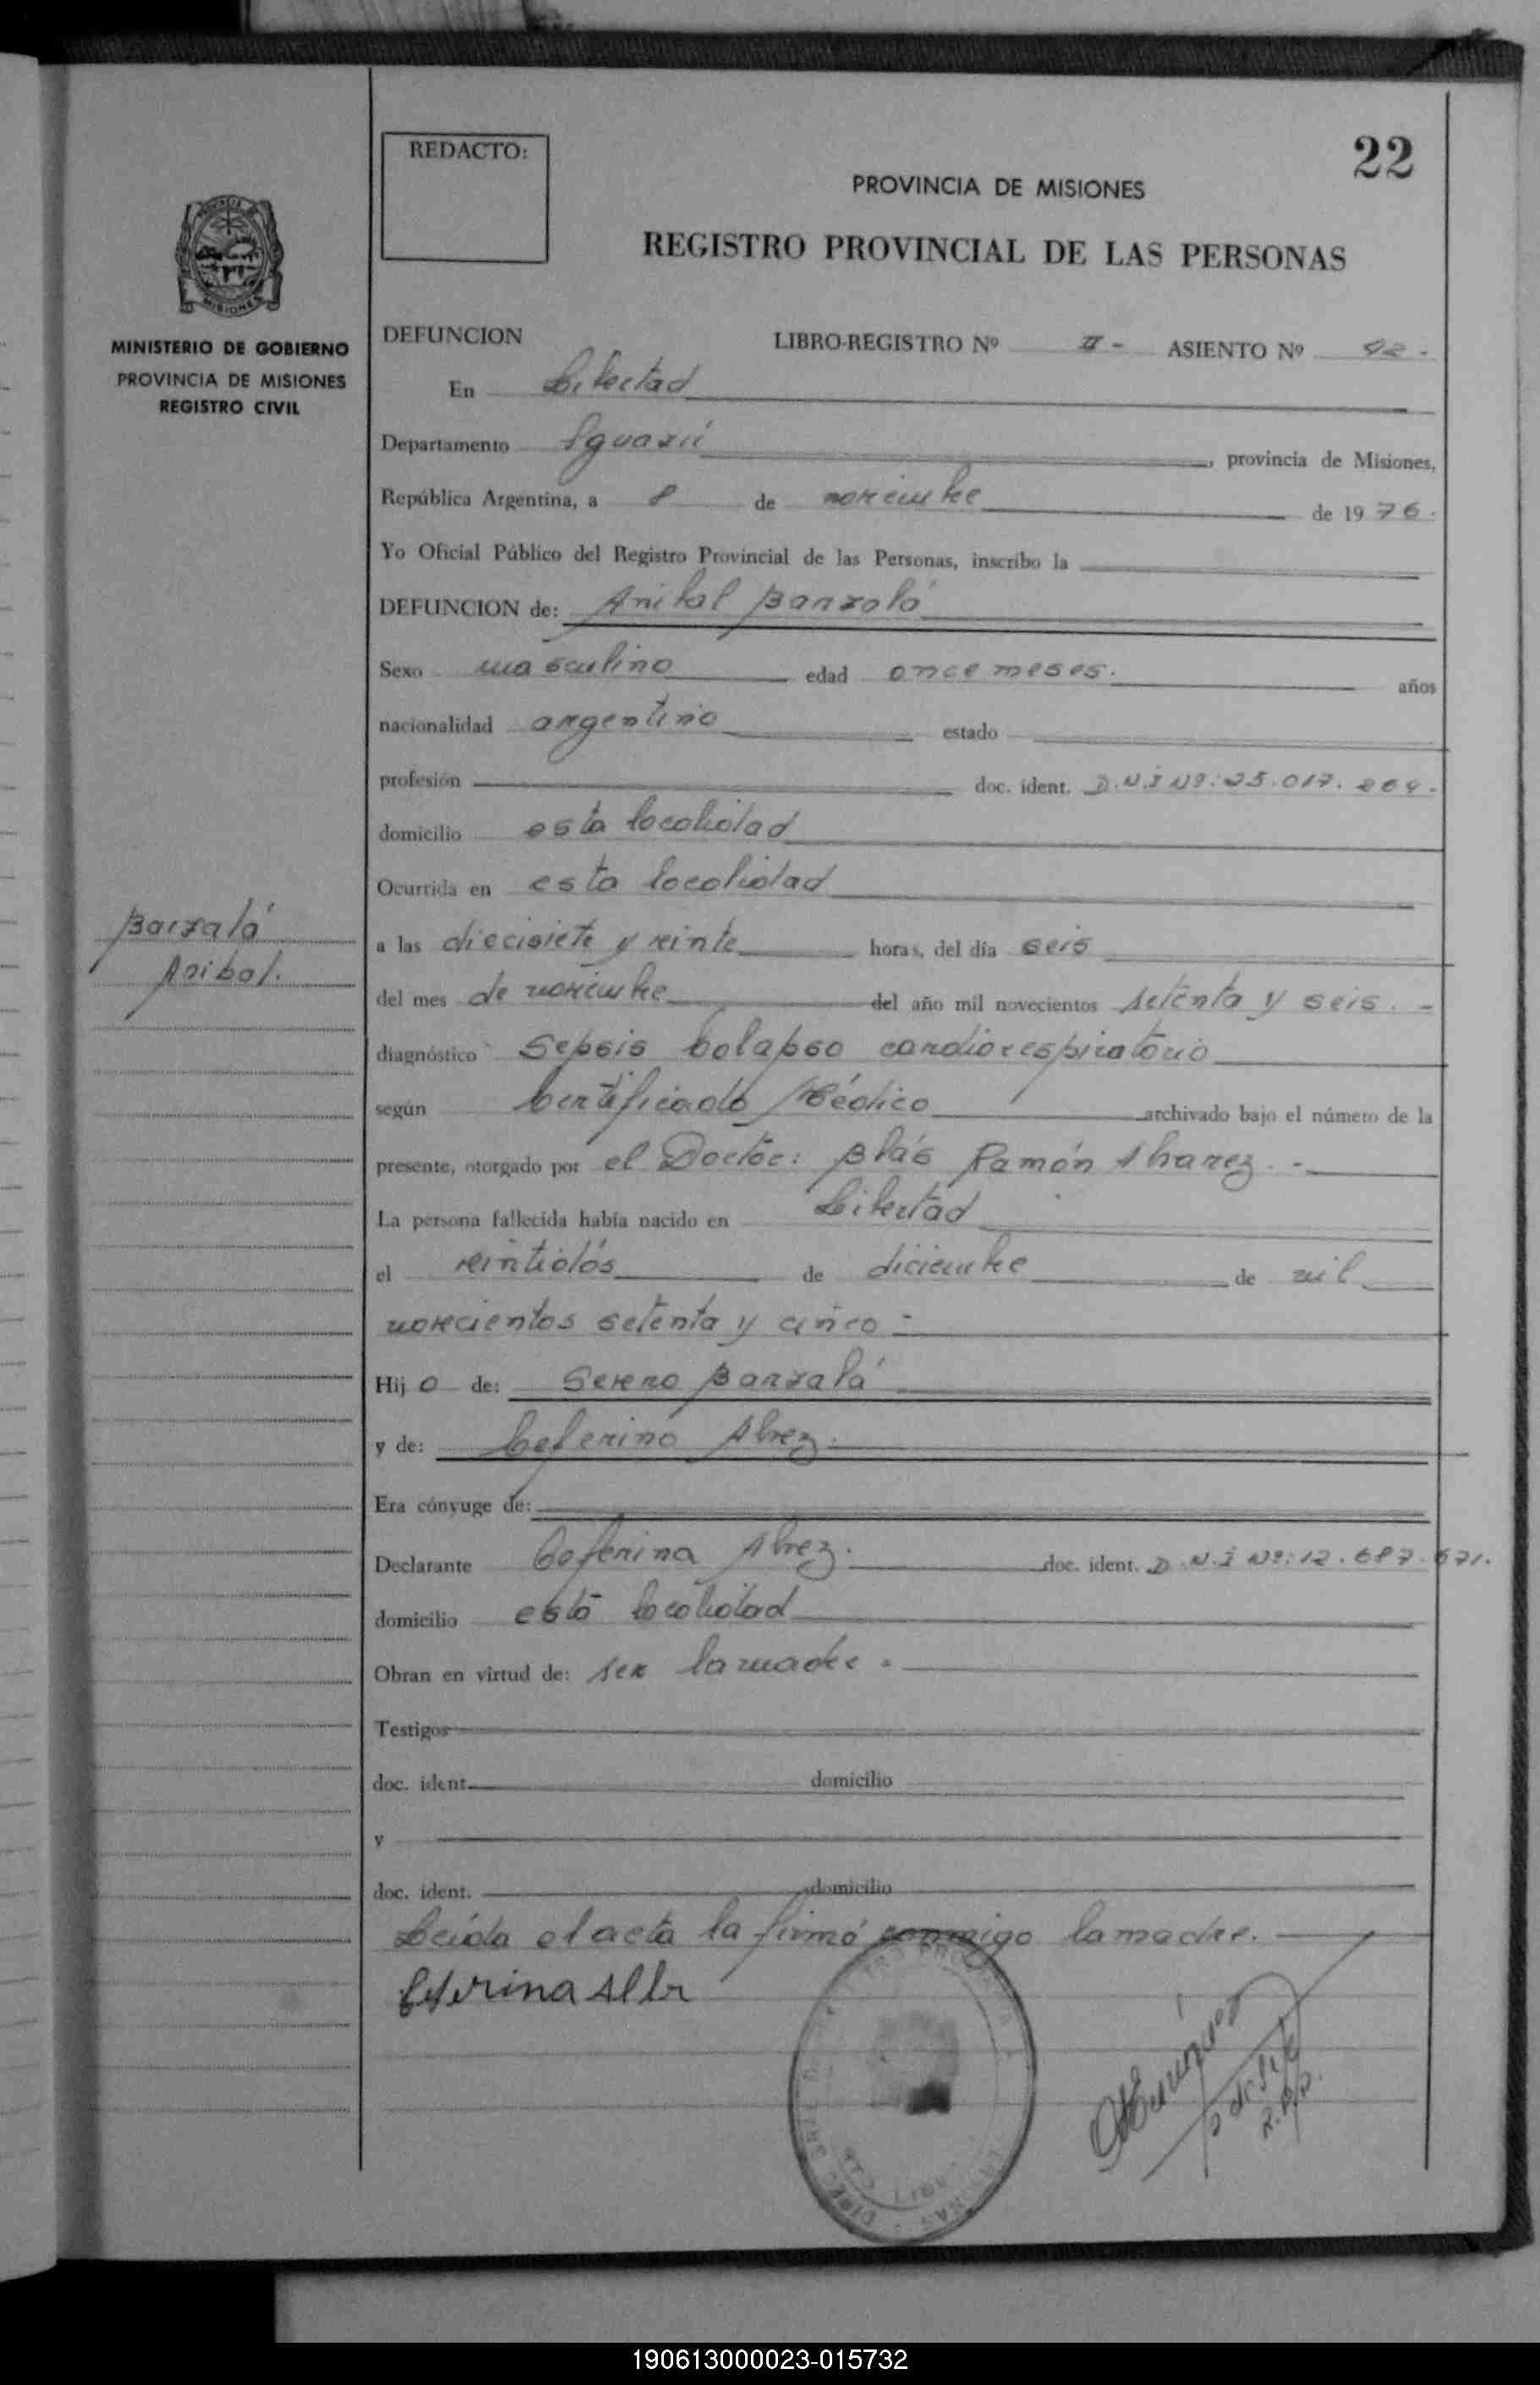 22
REDACTO:
PROVINCIA DE MISIONES
REGISTRO PROVINCIAL DE LAS PERSONAS
MISIONES
MINISTERIO DE GOBIERNO
PROVINCIA DE MISIONES
REGISTRO CIVIL
DEFUNCION LIBRO-REGISTRO Nº II - ASIENTO Nº
En Libertad
Departamento Iguazú, provincia de Misiones,
República Argentina, a 8 de noviembre de 1976.
Yo Oficial Público del Registro Provincial de las Personas, inscribo la
DEFUNCION de: Anibal Barzalá
Sexo masculino edad once meses. años
nacionalidad argentino estado
profesión doc. ident. D.N.I Nº: 25.017.
domicilio esta localidad
Ocurrida en esta localidad
Barzalá
Anibal.
a las diecisiete y veinte horas, del día seis
del mes de noviembre del año mil novecientos setenta y seis. -
diagnóstico Sepsis Colapso cardiorespiratorio
según Certificado Médico archivado bajo el número de la
presente, otorgado por el Doctor: Blás Ramón Alvarez. -
La persona fallecida había nacido en Libertad
el veintidós de diciembre de mil
novecientos setenta y cinco -
Hijo de: Sereno Barzalá
y de: Ceferina Alvez.
Era cónyuge de:
Declarante Ceferina Alvez. doc. ident. D.N.I Nº: 12.687.671.
domicilio esta localidad
Obran en virtud de: ser la madre.
Testigos
doc. ident. domicilio
y
doc. ident. domicilio
Leída el acta la firmó conmigo la madre.
Ceferina Albr
190613000023-015732